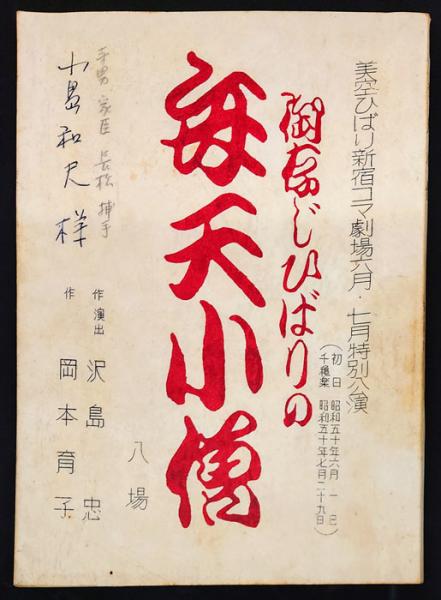 美空ひばり新宿コマ劇場六月・七月特別公演
（初日 昭和五十年六月一日
千穐楽 昭和五十年七月二十九日）
御存じひばりの
弁天小僧
八場
作・演出 沢島忠
作 岡本育子
家臣 長松 捕手
小島和夫様